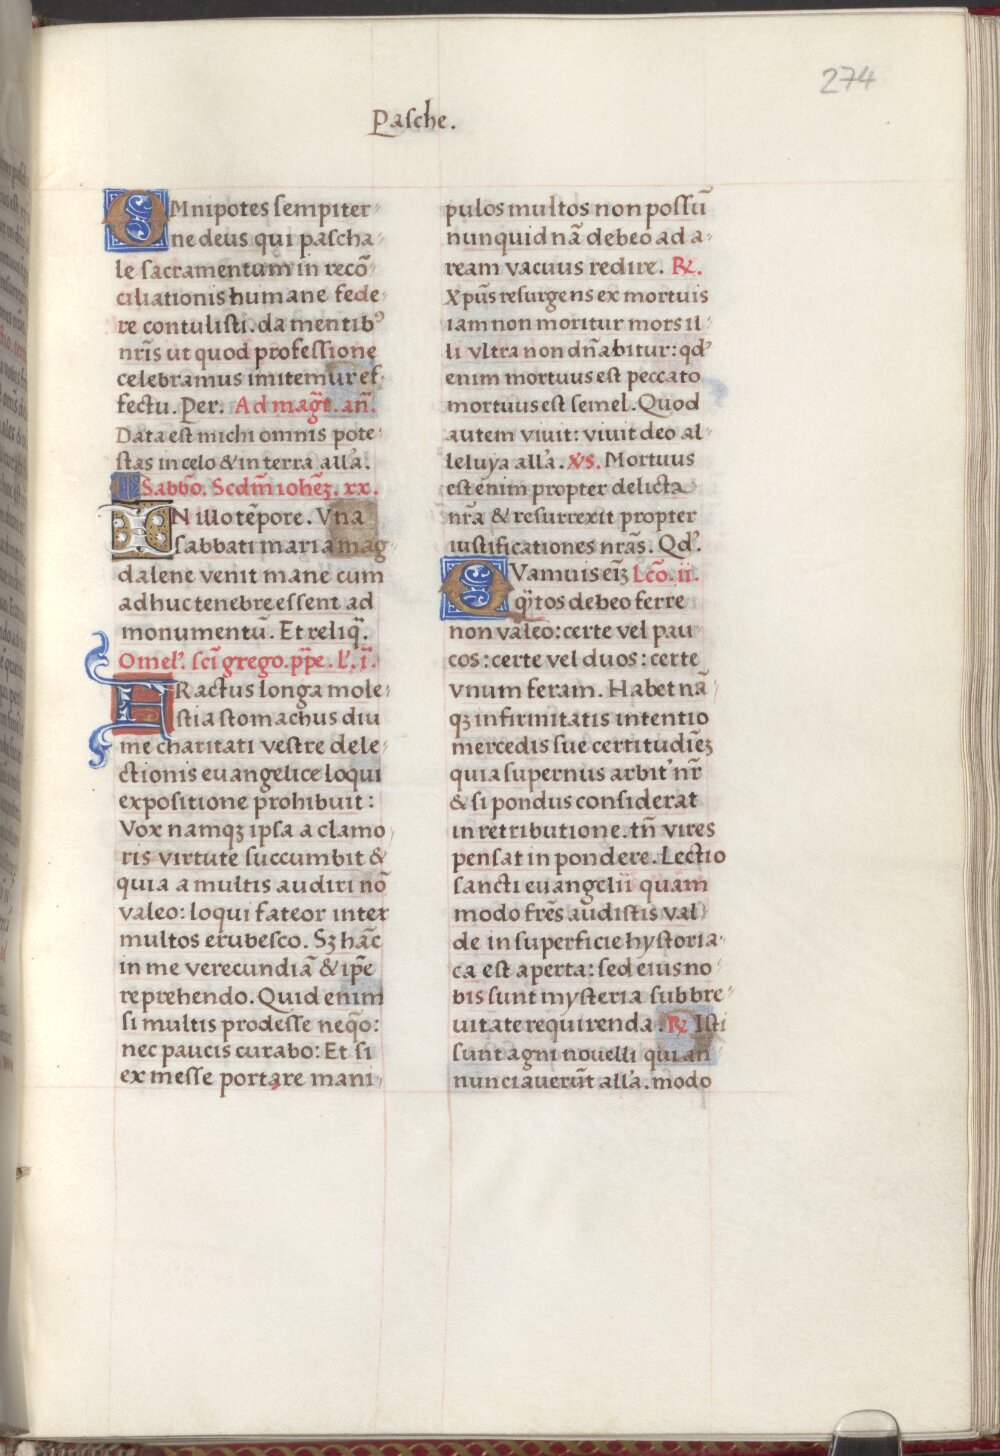 274
Pasche.
OMnipotes sempiter
ne deus qui pascha
le sacramentum in recō
ciliationis humane fede
re contulisti. da mentibꝰ
nr̄is ut quod professione
celebramus imitemur ef
fectu. Per. Ad magt̄. an̄.
Data est michi omnis pote
stas in celo & in terra all'a.
Sabbō. Scdm̄ iohēꝫ. xx.
IN illo tēpore. Vna
sabbati maria mag
dalene venit mane cum
adhuc tenebre essent ad
monumentū. Et reliq̄.
Omel'. sc̄i grego. pp̄e. l'. i.
FRactus longa mole
stia stomachus diu
me charitati vestre dele
ctionis euangelice loqui
expositione prohibuit:
Vox namqꝫ ipsa a clamo
ris virtute succumbit &
quia a multis audiri nō
valeo: loqui fateor inter
multos erubesco. Sꝫ hāc
in me verecundiā & ip̄e
reprehendo. Quid enim
si multis prodesse neq̄o:
nec paucis curabo: Et si
ex messe portare mani
pulos multos non possū
nunquid nā debeo ad a
ream vacuus redire. ℟.
Xpūs resurgens ex mortuis
iam non moritur mors il
li vltra non dn̄abitur: qd'
enim mortuus est peccato
mortuus est semel. Quod
autem viuit: viuit deo al
leluya all'a. V̓S. Mortuus
est enim propter delicta
nr̄a & resurrexit propter
iustificationes nrās. Qd'.
QVamuis eiꝫ Lcō. ii.
q̄tos debeo ferre
non valeo: certe vel pau
cos: certe vel duos: certe
vnum feram. Habet nā
qꝫ infirmitatis intentio
mercedis sue certitudiēꝫ
quia supernus arbit' nr̄
& si pondus considerat
in retributione. tn̄ vires
pensat in pondere. Lectio
sancti euangelii quam
modo frēs audistis val
de in superficie hystoria
ca est aperta: sed eius no
bis sunt mysteria sub bre
uitate requirenda. ℟ Isti
sunt agni nouelli qui an
nunciauerūt all'a. modo